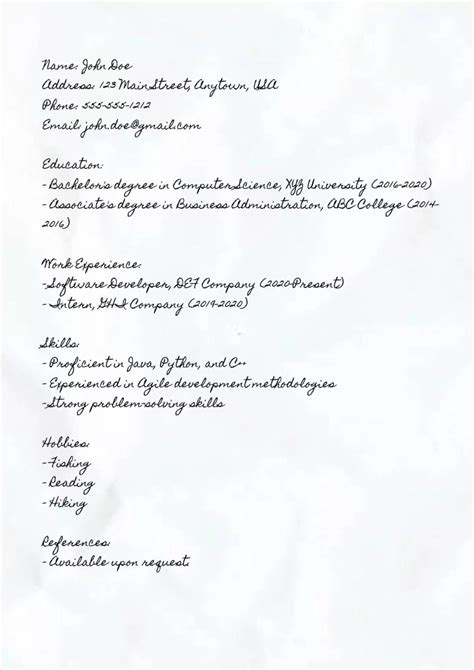 Name: John Doe
Address: 123 Main Street, Anytown, USA
Phone: 555-555-1212
Email: john.doe@gmail.com
Education:
- Bachelor's degree in Computer Science, XYZ University (2016-2020)
- Associate's degree in Business Administration, ABC College (2014-
2016)
Work Experience:
- Software Developer, DEF Company (2020-Present)
- Intern, GHI Company (2019-2020)
Skills:
- Proficient in Java, Python, and C++
- Experienced in Agile development methodologies
- Strong problem-solving skills
Hobbies:
- Fishing
- Reading
- Hiking
References:
- Available upon request.